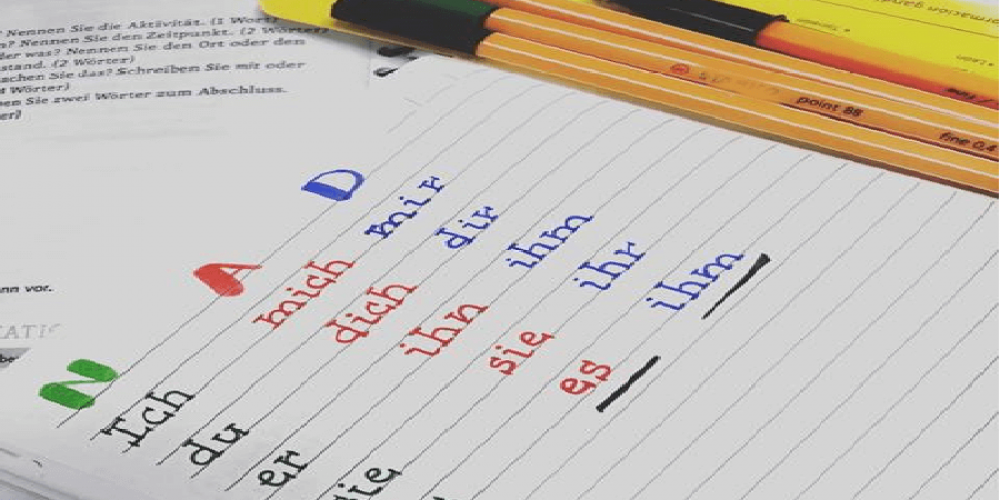 Nennen Sie die Aktivität. (1 Wort)
? Nennen Sie den Zeitpunkt. (2 Wörter)
der was? Nennen Sie den Ort oder den
stand. (2 Wörter)
achen Sie das? Schreiben Sie mit oder
Wörter)
en Sie zwei Wörter zum Abschluss.
er)
nn vor.
N A D
Ich mich mir
du dich dir
er ihn ihm
sie sie ihr
es ihm
point 88
fine 0,4